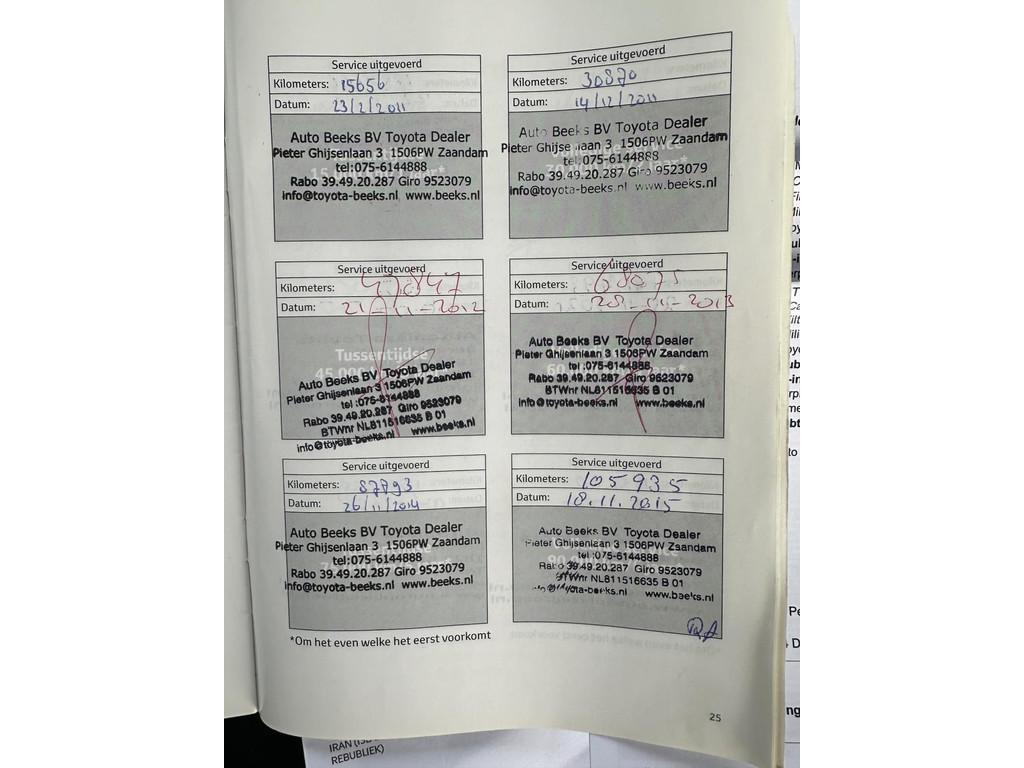 Service uitgevoerd
Kilometers: 15656
Datum: 23/2/2011
Auto Beeks BV Toyota Dealer
Pieter Ghijsenlaan 3 1506PW Zaandam
tel:075-6144888
Rabo 39.49.20.287 Giro 9523079
info@toyota-beeks.nl www.beeks.nl
Service uitgevoerd
Kilometers: 30870
Datum: 14/12/2011
Auto Beeks BV Toyota Dealer
Pieter Ghijse laan 3 1506PW Zaandam
tel:075-6144888
Rabo 39.49.20.287 Giro 9523079
info@toyota-beeks.nl www.beeks.nl
Service uitgevoerd
Kilometers: 47847
Datum: 21-11-2012
Tussentijdse
Auto Beeks BV Toyota Dealer
Pieter Ghijsenlaan 3 1506PW Zaandam
tel:075-6144888
Rabo 39.49.20.287 Giro 9523079
BTWnr NL811516635 B 01
info@toyota-beeks.nl www.beeks.nl
Service uitgevoerd
Kilometers: 68075
Datum: 20-11-2013
Auto Beeks BV Toyota Dealer
Pieter Ghijsenlaan 3 1506PW Zaandam
tel:075-6144888
Rabo 39.49.20.287 Giro 9523079
BTWnr NL811516635 B 01
info@toyota-beeks.nl www.beeks.nl
Service uitgevoerd
Kilometers: 87793
Datum: 26/11/2014
Auto Beeks BV Toyota Dealer
Pieter Ghijsenlaan 3 1506PW Zaandam
tel:075-6144888
Rabo 39.49.20.287 Giro 9523079
info@toyota-beeks.nl www.beeks.nl
Service uitgevoerd
Kilometers: 105935
Datum: 18.11.2015
Auto Beeks BV Toyota Dealer
Pieter Ghijsenlaan 3 1506PW Zaandam
tel:075-6144888
Rabo 39.49.20.287 Giro 9523079
BTWnr NL811516635 B 01
www.beeks.nl
*Om het even welke het eerst voorkomt
25
REBUBLIEK)